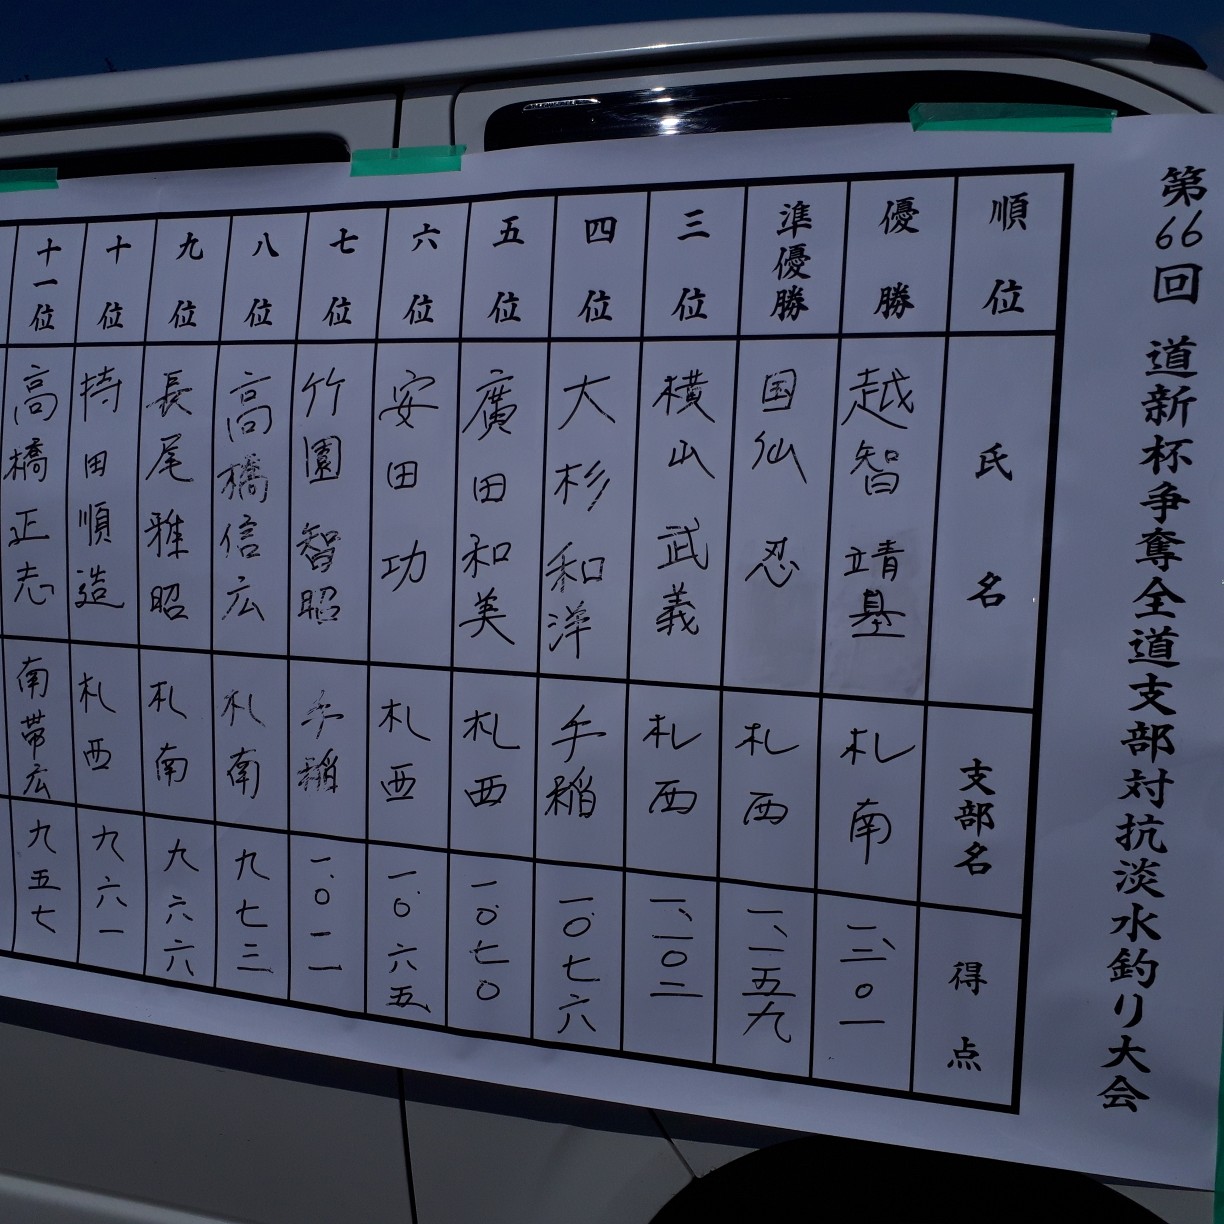 第66回 道新杯争奪全道支部対抗淡水釣り大会
順位 氏名 支部名 得点
優勝 越智靖基 札南 一、三〇一
準優勝 国仙忍 札西 一、一五九
三位 横山武義 札西 一、一〇二
四位 大杉和洋 手稲 一、〇七六
五位 廣田和美 札西 一、〇七〇
六位 安田功 札西 一、〇六五
七位 竹園智昭 手稲 一、〇一一
八位 高橋信広 札南 九七三
九位 長尾雅昭 札南 九六六
十位 持田順造 札西 九六一
十一位 高橋正志 南帯広 九五七